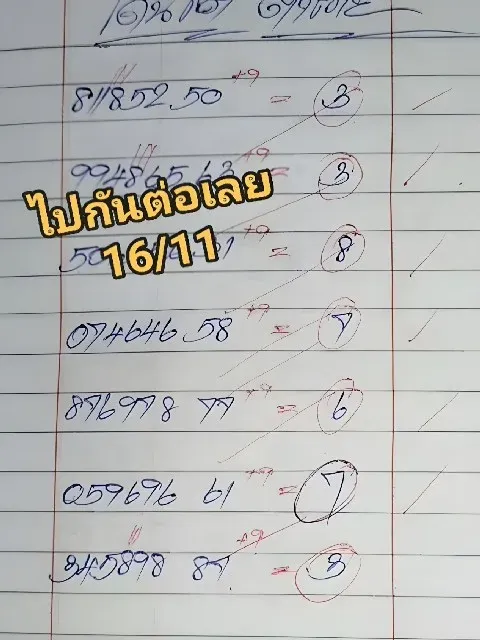 811852 50 +9 = 3
994865 63 +9 = 3
ไปกันต่อเลย
16/11
50 1 +9 = 8
074646 58 +9 = 7
876978 77 +9 = 6
059696 61 +9 = 7
345898 87 +9 = 3